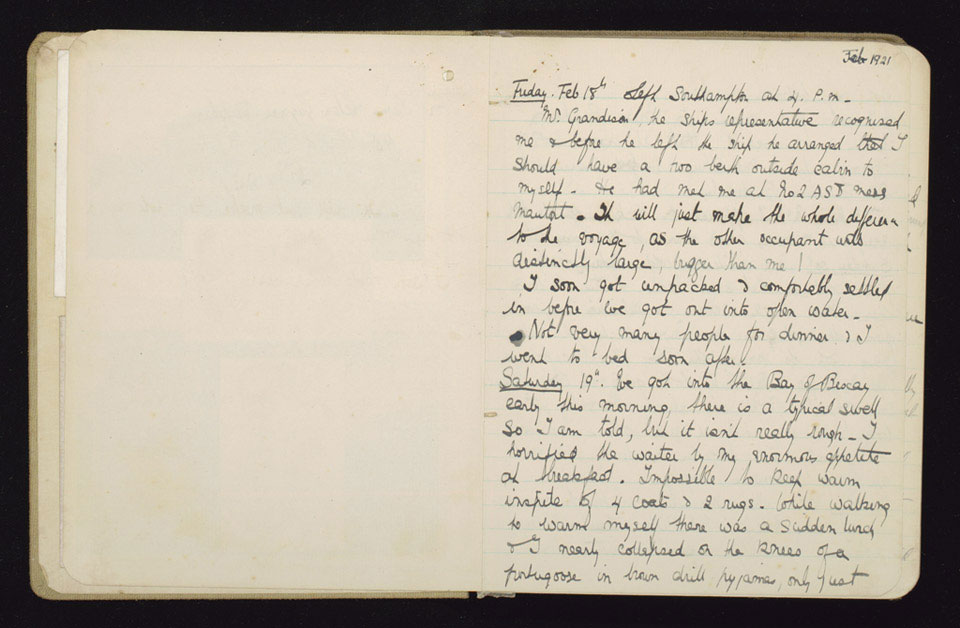 Feb 1921
Friday. Feb 18th Left Southampton at 4. P.m.
Mr. Grandison, the ships representative recognised
me & before he left the ship he arranged that I
should have a two berth outside cabin to
myself. He had met me at No 2 ASD mess
. It will just make the whole differen
to the voyage, as the other occupant was
distinctly large, bigger than me!
I soon got unpacked & comfortably settled
in before we got out into open water.
Not very many people for dinner & I
went to bed soon after.
Saturday 19th. We got into the Bay of Biscay
early this morning, there is a typical swell
so I am told, but it isn't really rough. I
horrified the waiter by my enormous appetite
at breakfast. Impossible to keep warm
inspite of 4 coats & 2 rugs. While walking
to warm myself there was a sudden lurch
& I nearly collapsed on the knees of a
portugoose in brown drill pyjamas, only just